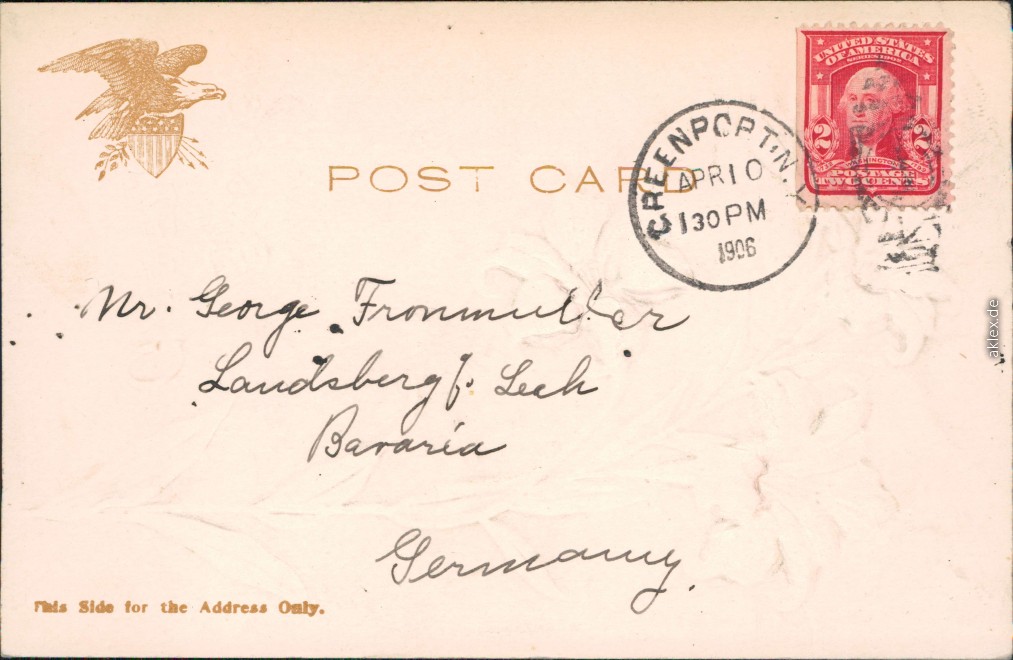 UNITED STATES
OF AMERICA
SERIES 1902
2 2
WASHINGTON
POSTAGE
TWO CENTS
GREENPORT, N.Y.
APR 10
130 PM
1906
POST CARD
Mr. George Fronmuller
Landsberg f. Lech
Bavaria
Germany.
This Side for the Address Only.
aklex.de